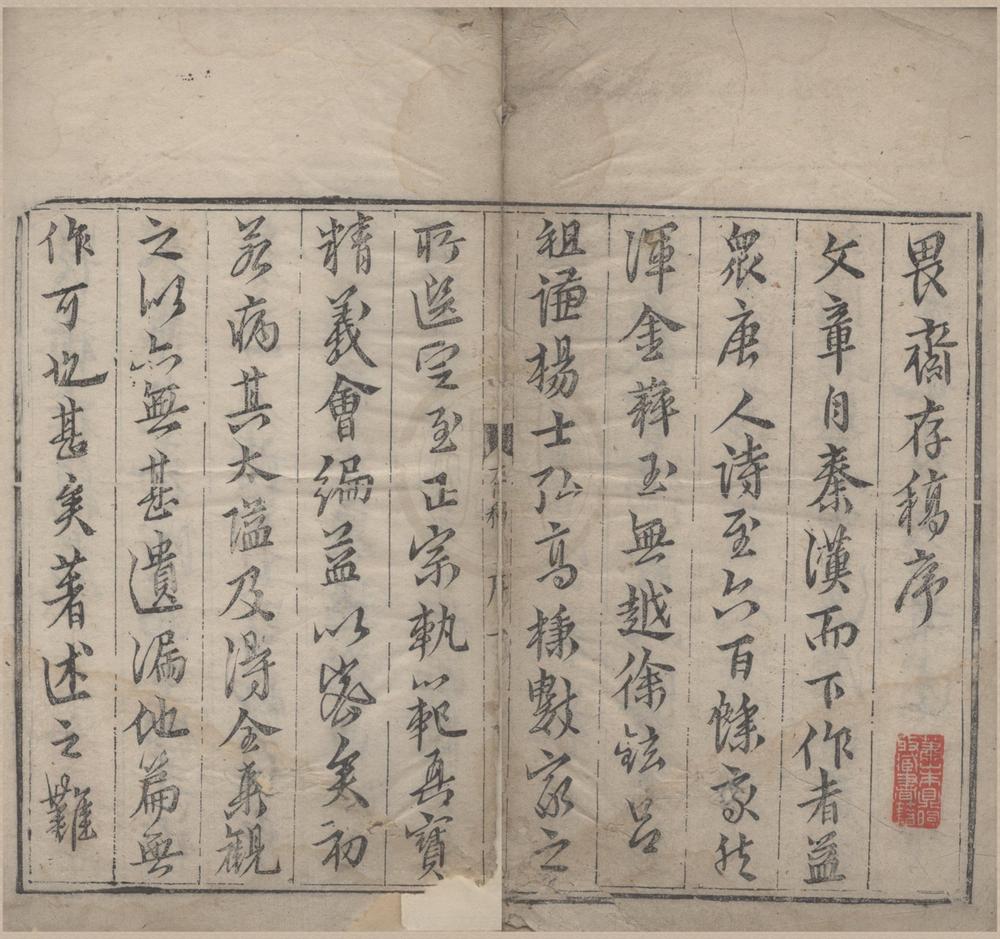 畏齋存稿序
文章自秦漢而下作者益
衆唐人詩至六百餘家然
渾金璞玉無越徐鉉呂
祖謙楊士弘高棅數家之
所選定至正宗軌範真寶
精義會編益以密矣初
若病其太謚及得全集觀
之似亦無甚遺漏他篇無
作可也甚矣著述之難
存稿
序
一